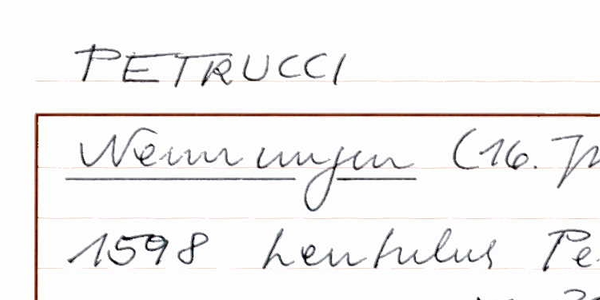 PETRUCCI
Nennungen (16. J
1598 Lentulus Pe